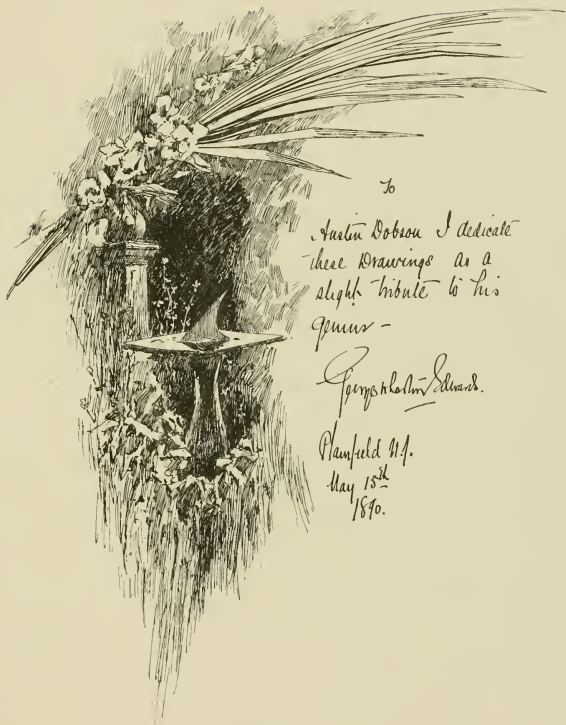 To
Austin Dobson I dedicate
these Drawings as a
slight tribute to his
genius –
George Wharton Edwards.
Plainfield N.J.
May 15th
1890.